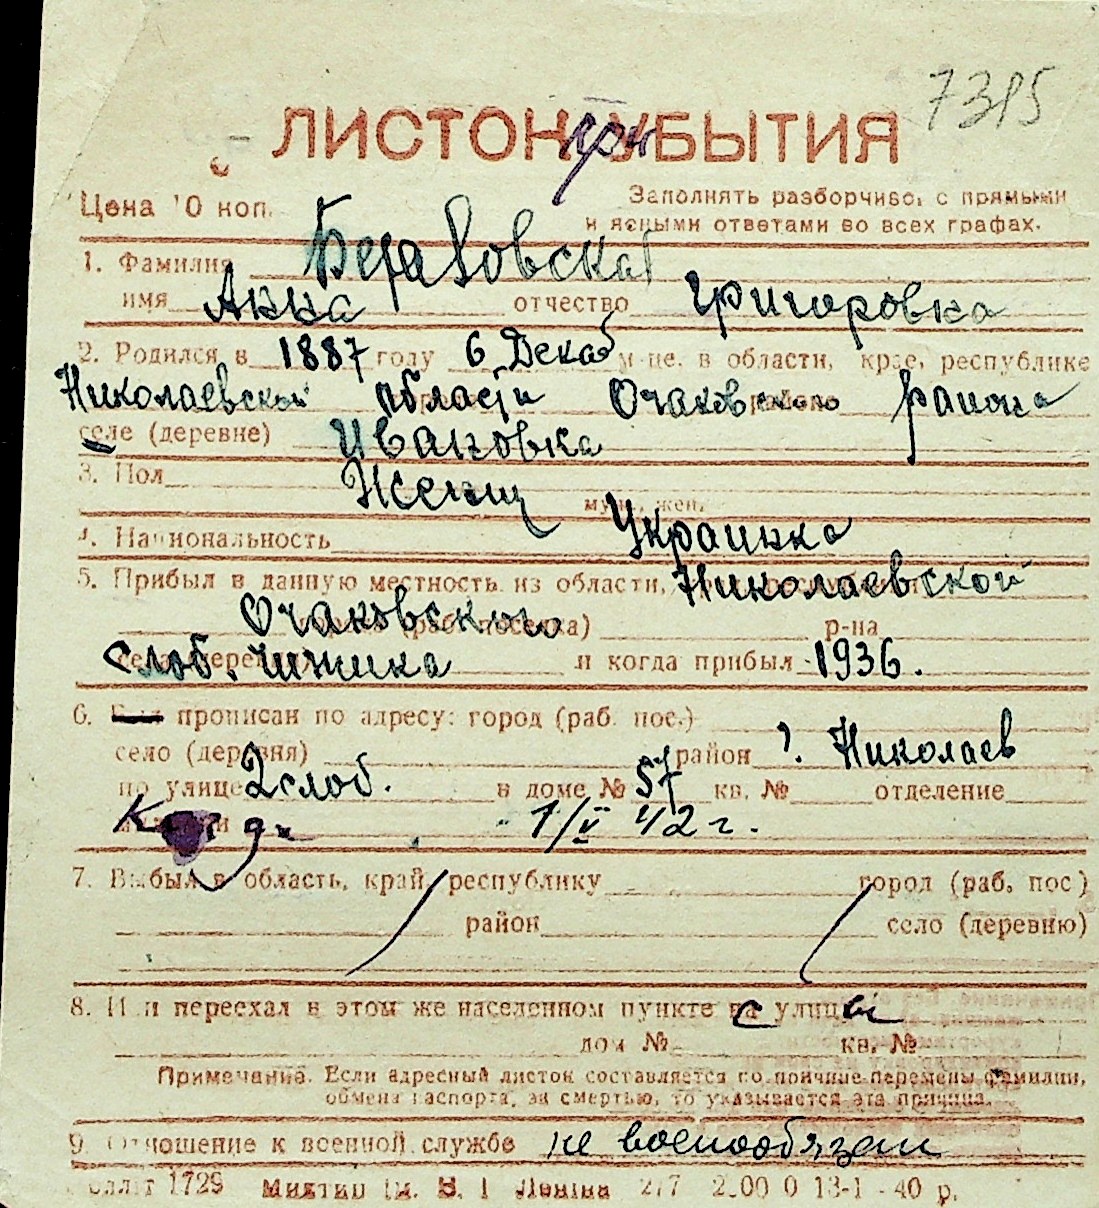 7315
ЛИСТОК УБЫТИЯ
Цена 10 коп. Заполнять разборчиво, с прямыми
и ясными ответами во всех графах.
1. Фамилия
имя Анна отчество Григоровна
2. Родился в 1887 году 6 Декаб м-це. в области, крае, республике
Николаевской области Очаковского района
селе (деревне) Ивановка
3. Пол Женщ муж. жен.
4. Национальность Украинка
5. Прибыл в данную местность из области, Николаевской
Очаковского (раб. поселка) р-на
слоб. и когда прибыл 1936.
6. Был прописан по адресу: город (раб. пос.)
село (деревня) район г. Николаев
по улице 2 слоб. в доме № 57 кв. № отделение
1/V 42 г.
7. Выбыл в область, край, республику город (раб. пос)
район село (деревню)
8. Или переехал в этом же населенном пункте с улицы
дом № кв. №
Примечание. Если адресный листок составляется по причине перемены фамилии,
обмена паспорта, за смертью, то указывается эта причина.
9. Отношение к военной службе не военообязан
1729 Ленина 2.00 0 13-1 - 40 р.